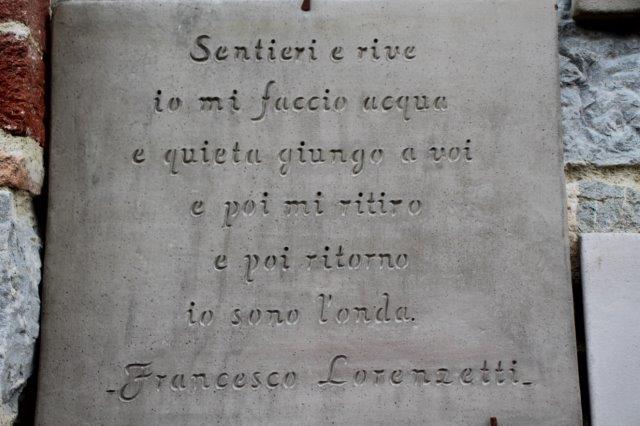 Sentieri e rive
io mi faccio acqua
e quieta giungo a voi
e poi mi ritiro
e poi ritorno
io sono l'onda.
-Francesco Lorenzetti-